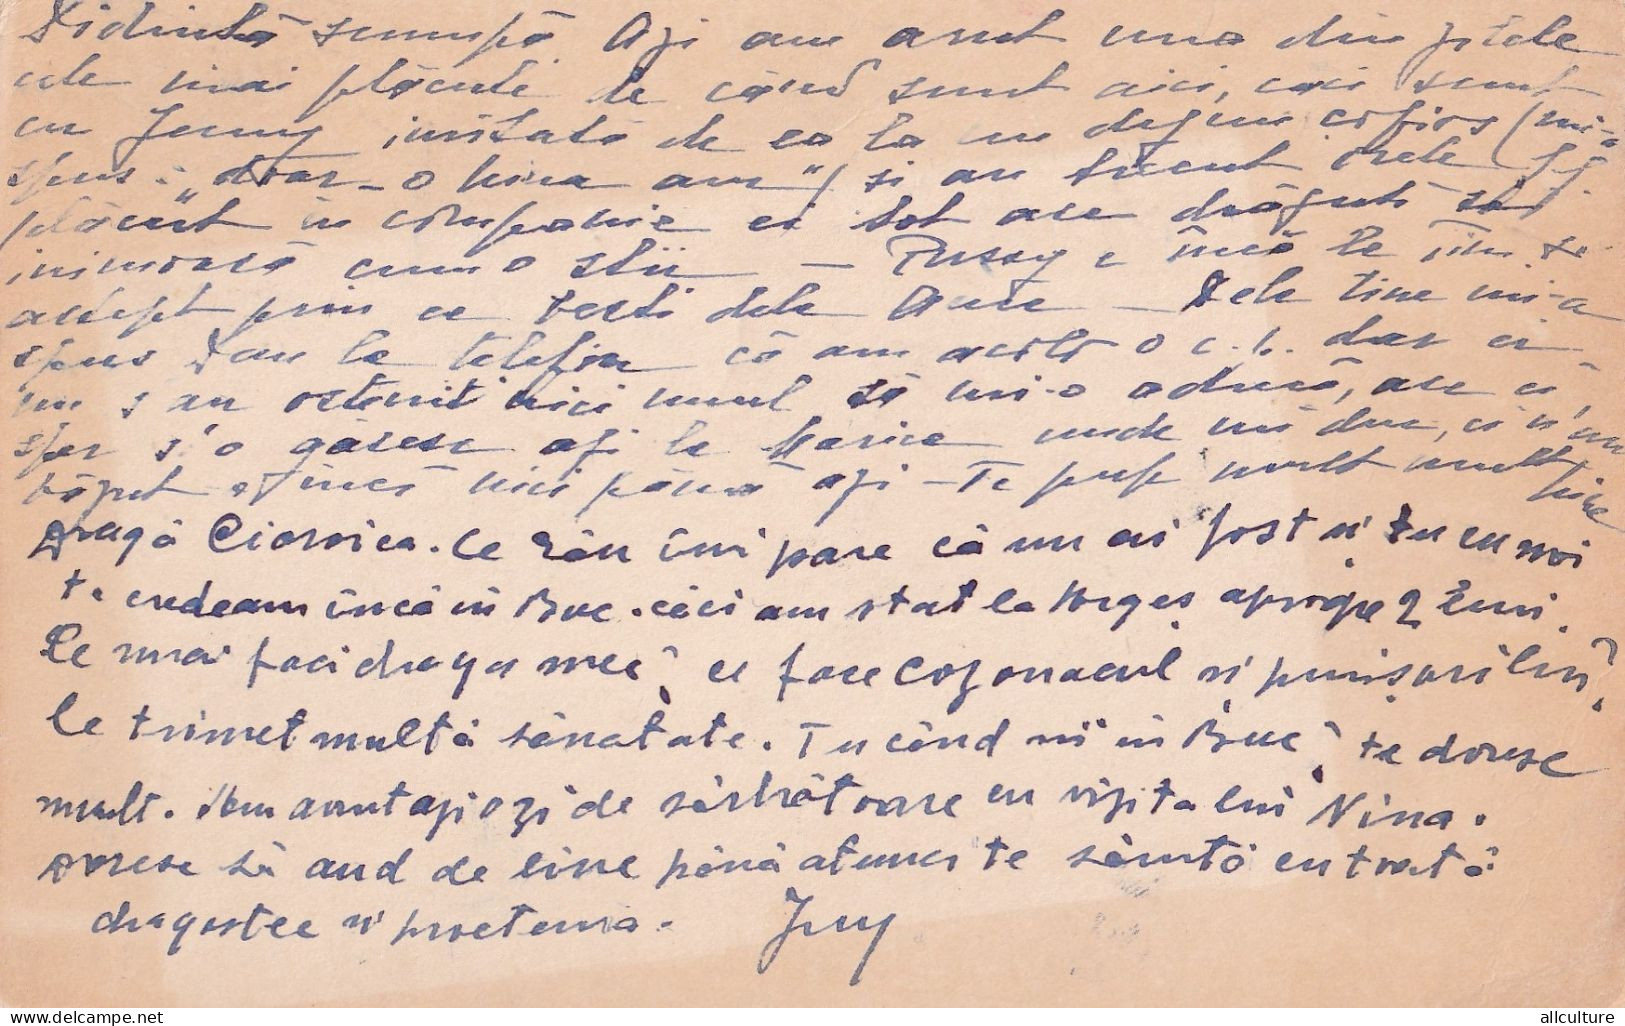 scumpă Azi am avut una din zilele
cele mai plăcute de când sunt aici, căci sunt
cu Jenny invitată de ea la un dejun copios (mi-a
spus: „doar-o hina am") și au trecut orele
plăcut în compania ei tot așa drăguță și
inimoasă cum o știi — Pussy e încă la
aștept prin ea vești dela — Dela tine mi-a
spus Dan la telefon că am acolo o c.p. dar ei
nu s'au ostenit nici unul să mi-o aducă, așa că
sper s'o găsesc azi la Marica unde mă duc, că n'am
căput-o încă nici până azi - Te pup mult mult
Dragă Cionica. Ce rău îmi pare că nu ai fost și tu cu noi
te credeam încă în Buc. căci am stat la aproape 2 luni.
Ce mai faci draga mea? ce face Cozonacul și
le trimet multă sănatate. Tu când vii în Buc? te doresc
mult. Am avut azi o zi de sărbătoare cu vizita lui Nina.
Doresc să aud de tine până atunci te sărută cu toată
dragostea și prietenia. Jeny
delcampe.net
allculture